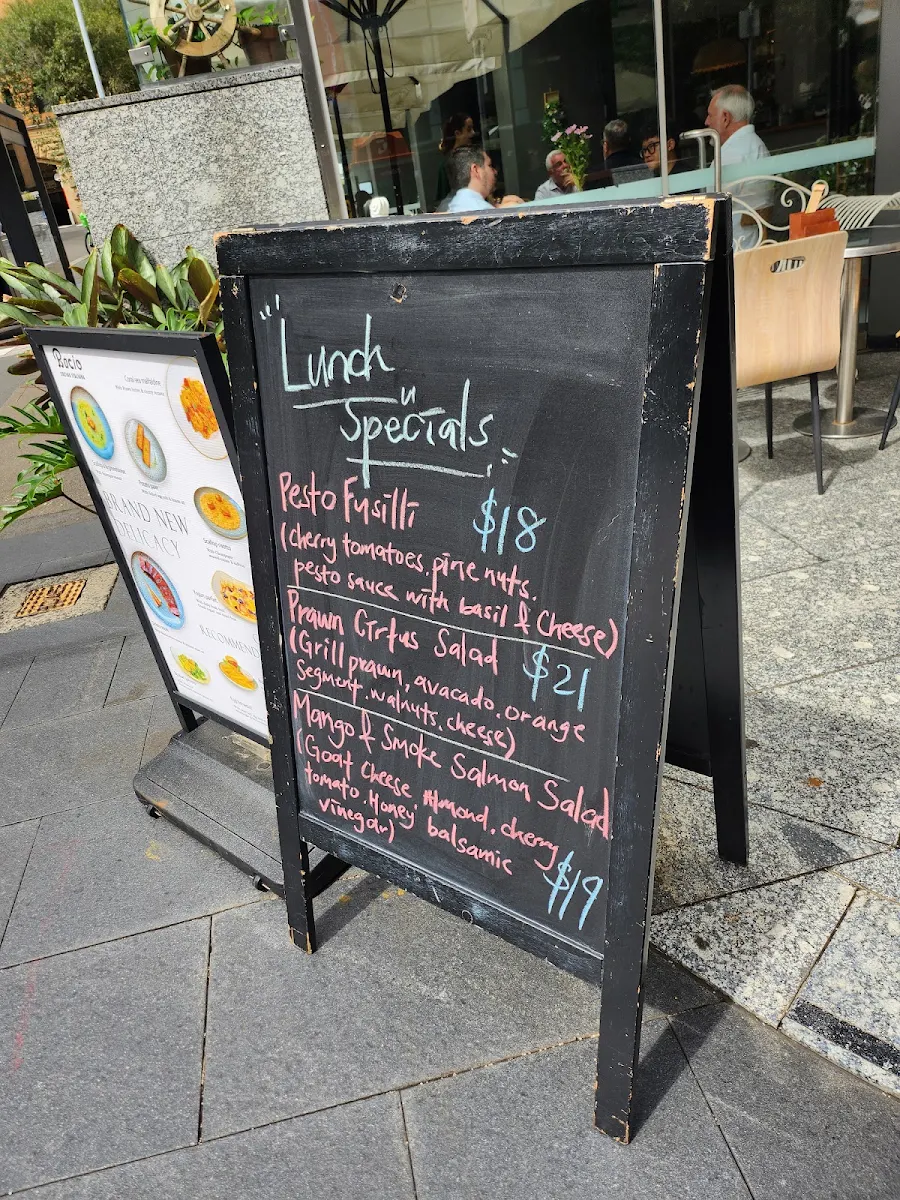 Lunch
Specials
Pesto Fusilli
$18
(cherry tomatoes, pine nuts.
pesto sauce with basil & Cheese)
Prawn Citrus Salad
$21
(Grill prawn, avacado. orange
segment. walnuts. cheese)
Mango & Smoke Salmon Salad
(Goat Cheese Almond. cherry
tomato. Honey balsamic
vinegar)
$19
Rocio
BRAND NEW
DELICACY
RECOMMEND